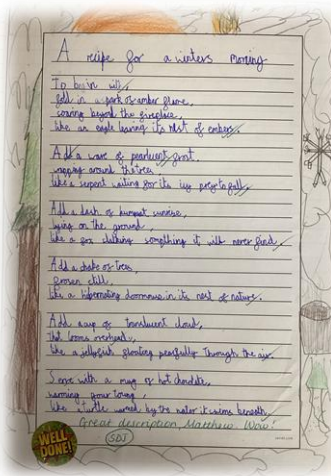 A recipe for a winters morning
To begin with,
fold in a spark of amber flame,
soaring beyond the fireplace,
like an eagle leaving its nest of embers.
Add a wave of pearlescent frost,
wrapping around the trees
like a serpent waiting for its icy prey to fall.
Add a dash of sunrise,
lying on the ground,
like a fox stalking something it will never find.
Add a shake of trees,
frozen still,
like a hibernating dormouse in its nest of nature.
Add a cup of translucent cloud,
that looms overhead,
like a jellyfish floating peacefully through the air.
Serve with a mug of hot chocolate,
warming your
like a turtle warmed by the water it swims beneath.
Great description, Matthew. Wow!
SDJ
WELL DONE!